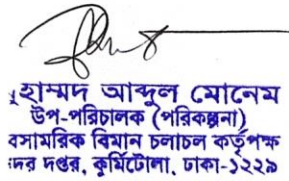 ুহাম্মদ আব্দুল মোনেম
উপ-পরিচালক (পরিকল্পনা)
বসামরিক বিমান চলাচল কর্তৃপক্ষ
দর দপ্তর, কুর্মিটোলা, ঢাকা-১২২৯